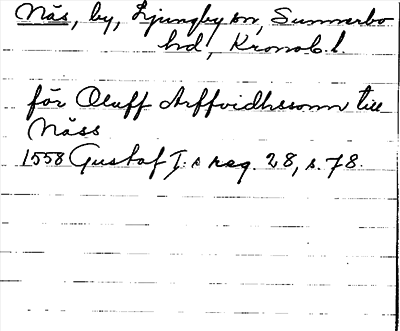 Näs, by, Ljungby sn, Sunnerbo
hd, Kronob. l.
för Oluff Arffvidhssonn till
Näss
1558 Gustaf I:s reg. 28, s. 78.